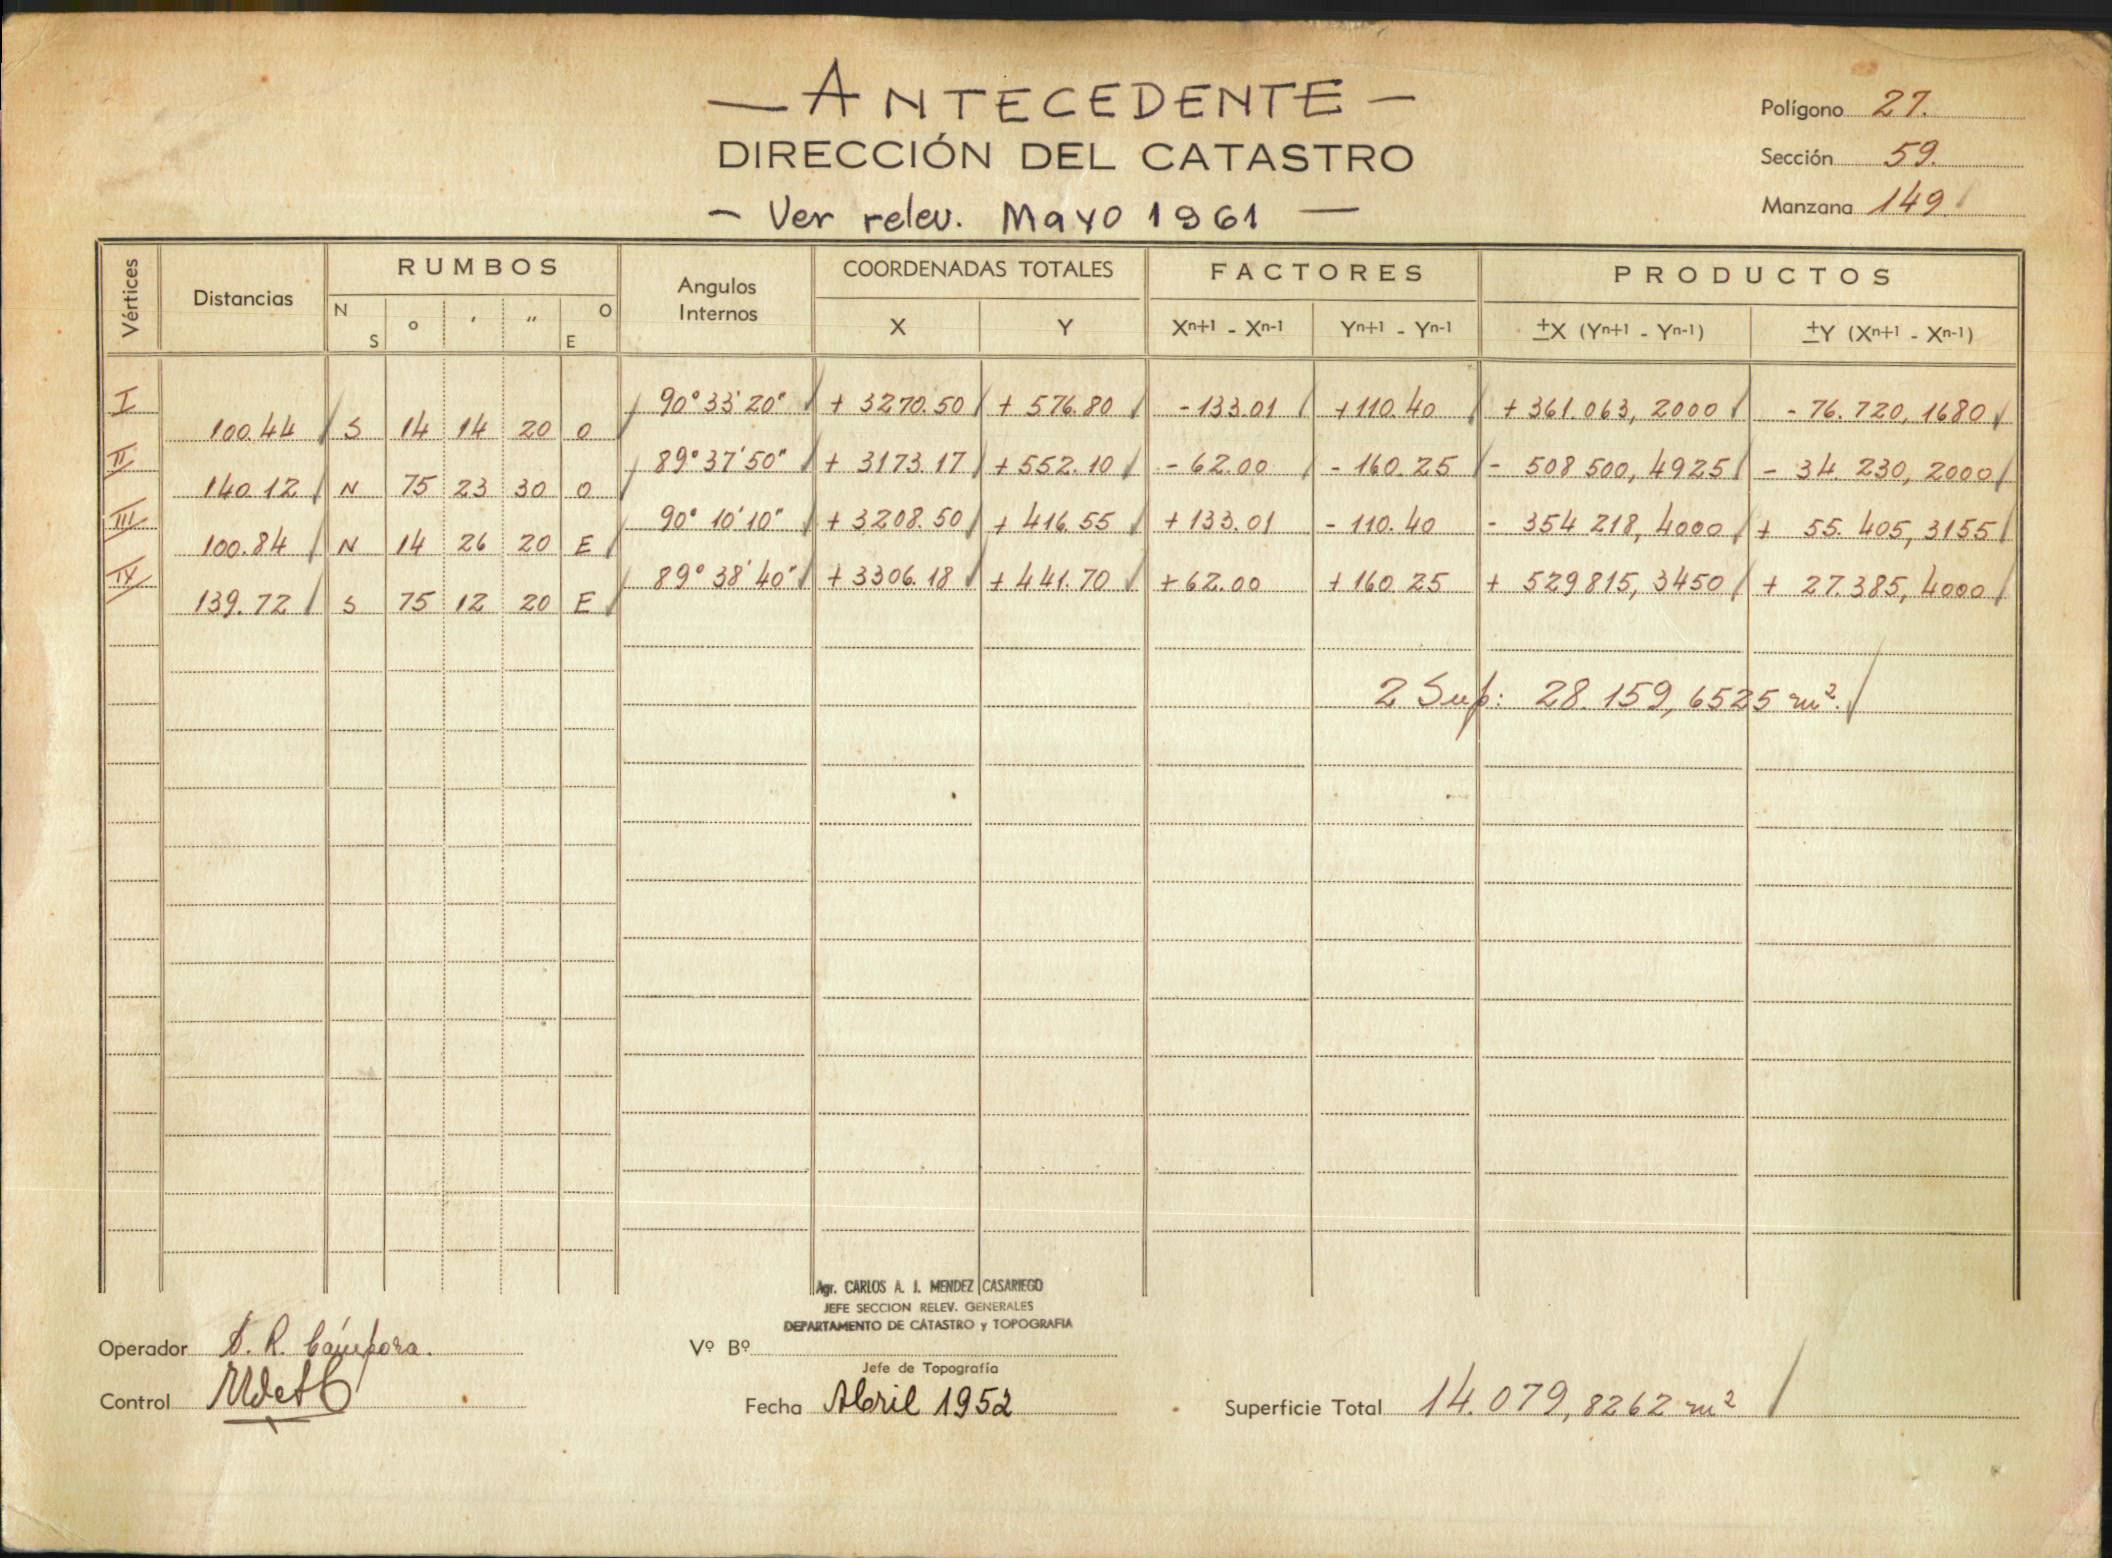 — ANTECEDENTE —
DIRECCIÓN DEL CATASTRO
— Ver relev. Mayo 1961 —
Polígono 27.
Sección 59.
Manzana 149.
Vértices Distancias RUMBOS Angulos Internos COORDENADAS TOTALES FACTORES PRODUCTOS
N S ° ' " O E X Y Xn+1 - Xn-1 Yn+1 - Yn-1 ±X (Yn+1 - Yn-1) ±Y (Xn+1 - Xn-1)
I 90° 33' 20" + 3270.50 + 576.80 - 133.01 + 110.40 + 361.063, 2000 - 76.720, 1680
100.44 S 14 14 20 O
II 89° 37' 50" + 3173.17 + 552.10 - 62.00 - 160.25 - 508 500, 4925 - 34.230, 2000
140.12 N 75 23 30 O
III 90° 10' 10" + 3208.50 + 416.55 + 133.01 - 110.40 - 354 218, 4000 + 55.405, 3155
100.84 N 14 26 20 E
IV 89° 38' 40" + 3306.18 + 441.70 + 62.00 + 160.25 + 529815, 3450 + 27.385, 4000
139.72 S 75 12 20 E
2 Sup: 28.159, 6525 m²
Agr. CARLOS A. J. MENDEZ CASARIEGO
JEFE SECCION RELEV. GENERALES
DEPARTAMENTO DE CATASTRO y TOPOGRAFIA
Operador D. R. Cámpora.
Vº Bº
Jefe de Topografía
Control
Fecha Abril 1952
Superficie Total 14.079, 8262 m²